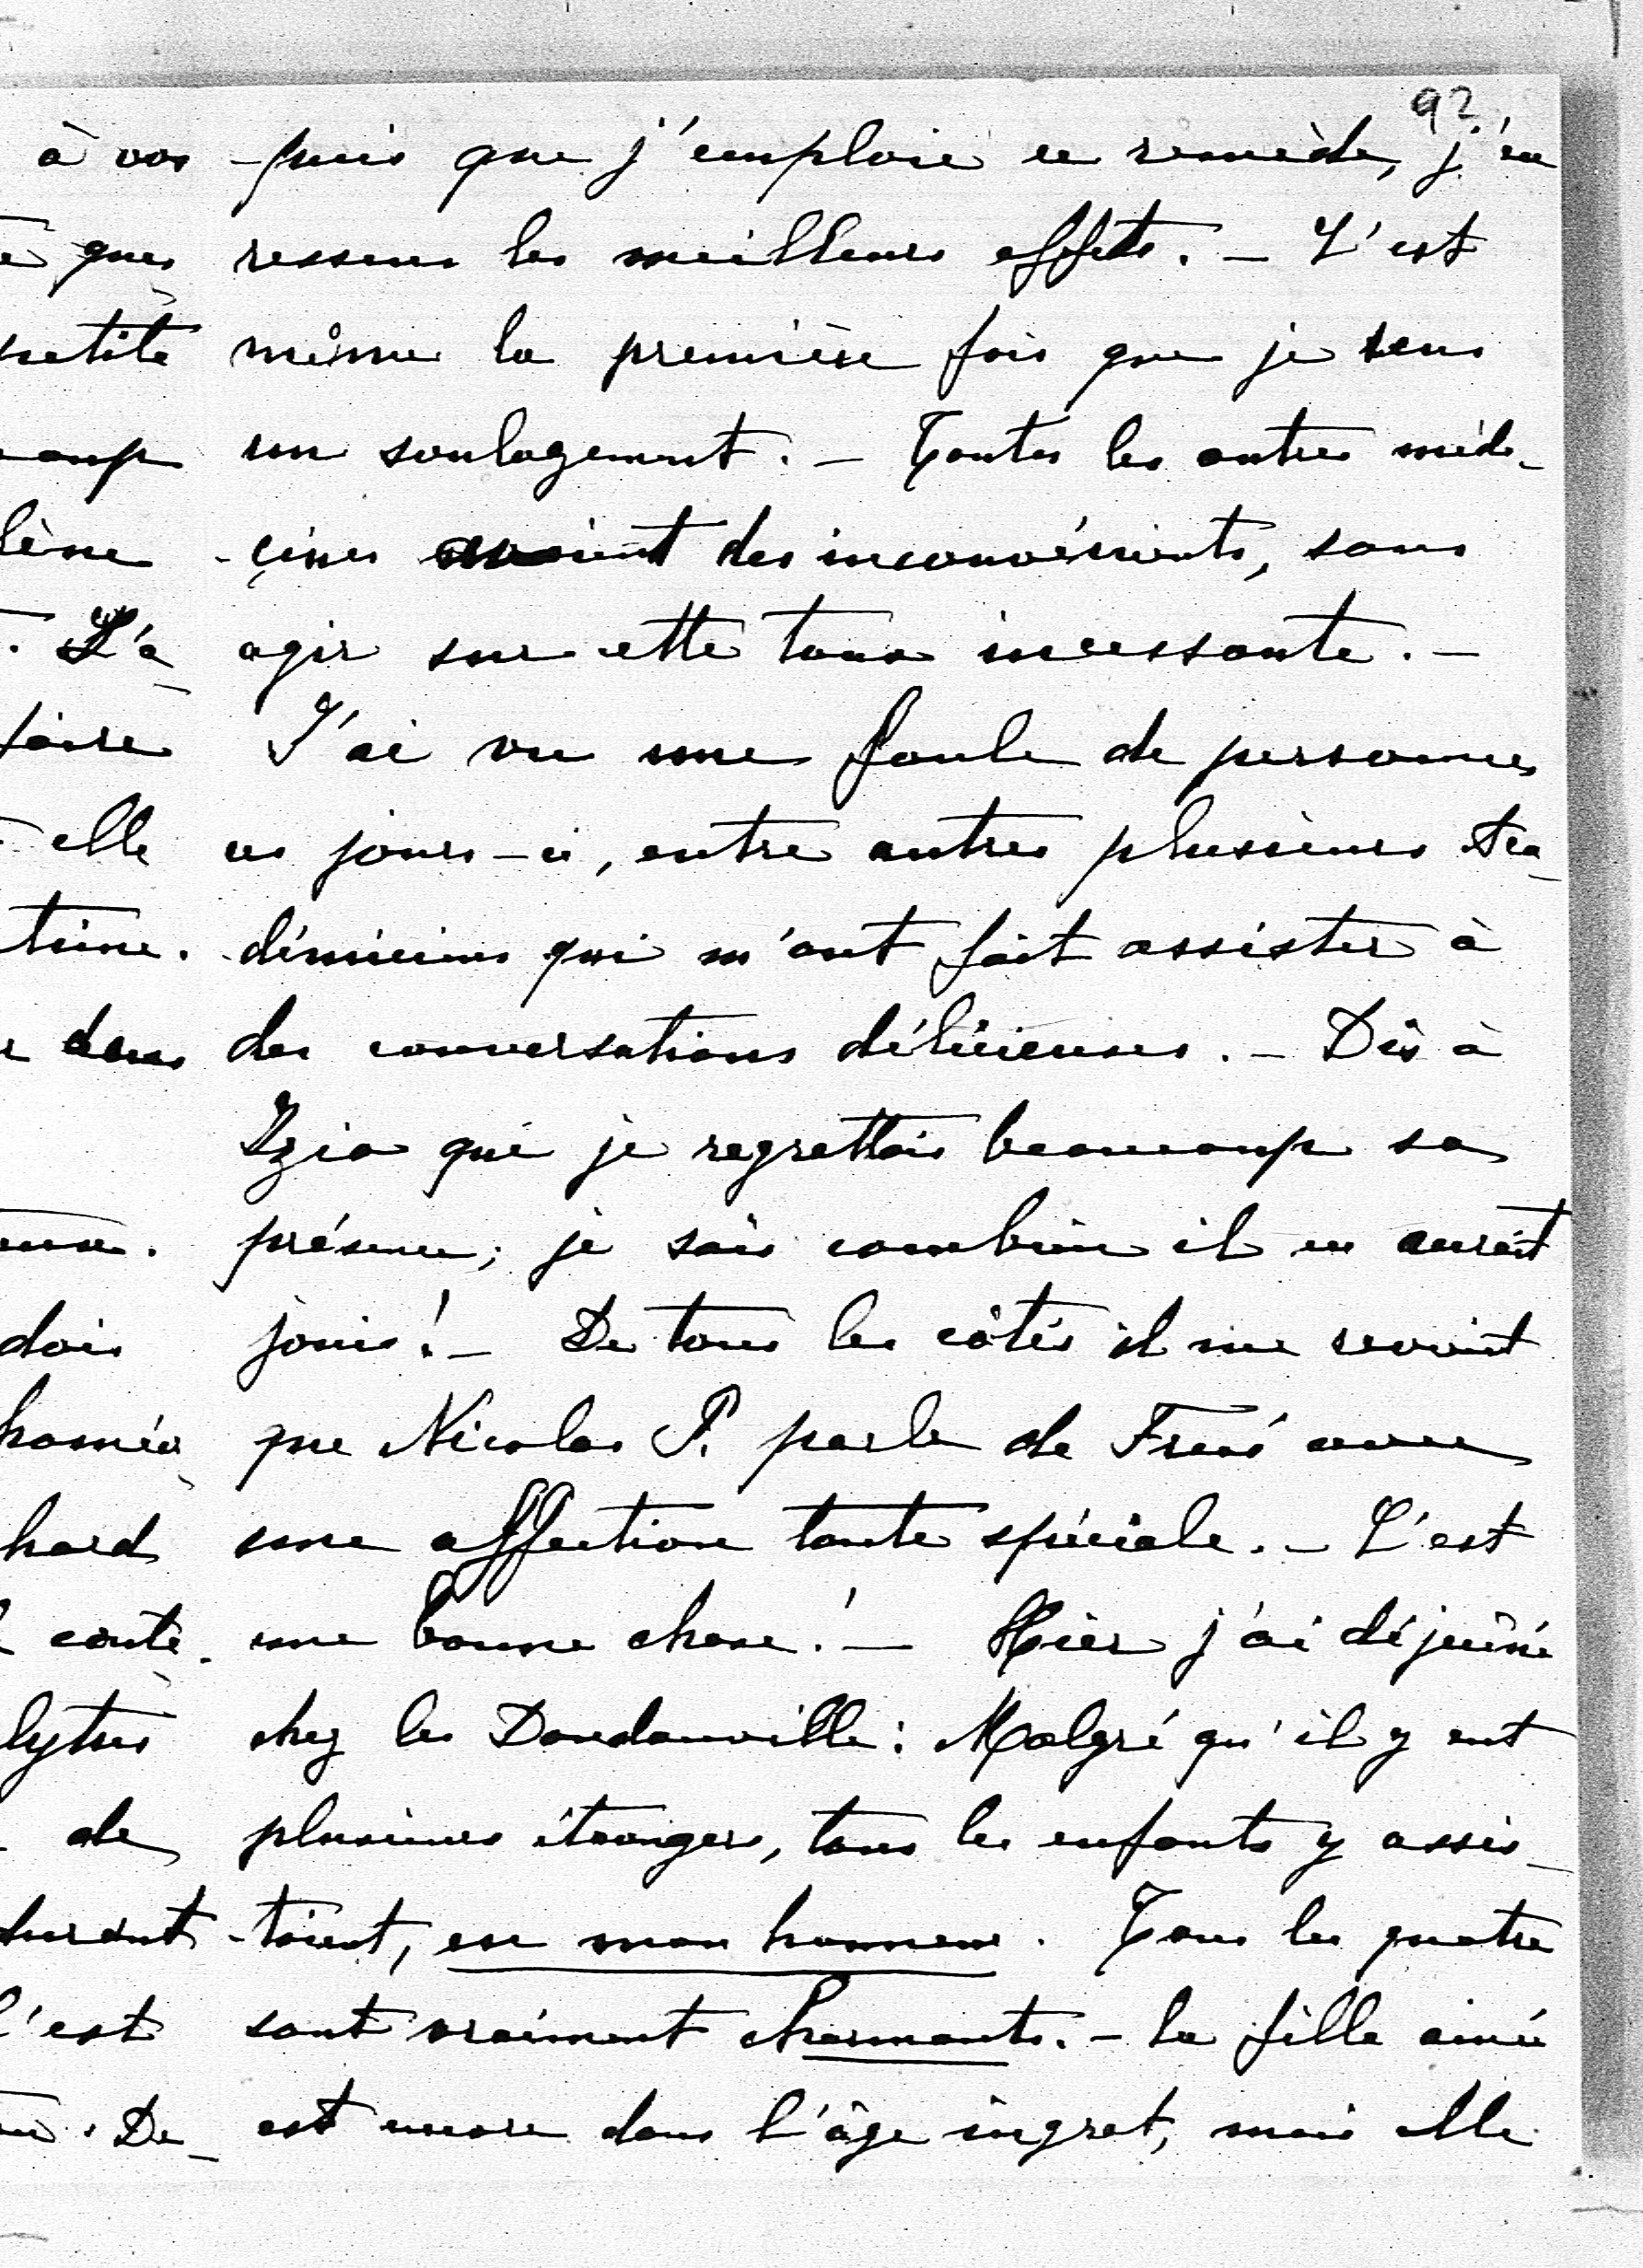 92
-puis que j'emploie ce remède, j'en
ressens les meilleurs effets. - C'est
même la première fois que je sens
un soulagement. - Toutes les autres méde-
-çines avaient des inconvénients, sans
agir sur cette toux incessante. -
J'ai vu une foule de personnes
ces jours-ci, entre autres plusieurs Aca-
démiciens qui m'ont fait assister à
des conversations délicieuses. - Dis à
Izia que je regrettais beaucoup sa
présence; je sais combien il en aurait
joui! - De tous les côtés il me revient
que Nicolas P. parle de avec
une affection toute spéciale. - C'est
une bonne chose! - Hier j'ai déjeûné
chez les Doudeauville: Malgré qu'il y eut
plusieurs étrangers, tous les enfants y assis-
-taient, en mon honneur. Tous les quatre
sont vraiment charmants. - la fille ainée
est encore dans l'âge ingrat, mais elle
à vos
que
petite
oup
lène
L'a-
faire
elle
trine.
dans
dois
homéo
hard
conte-
lytus
de
durant
l'est
De-